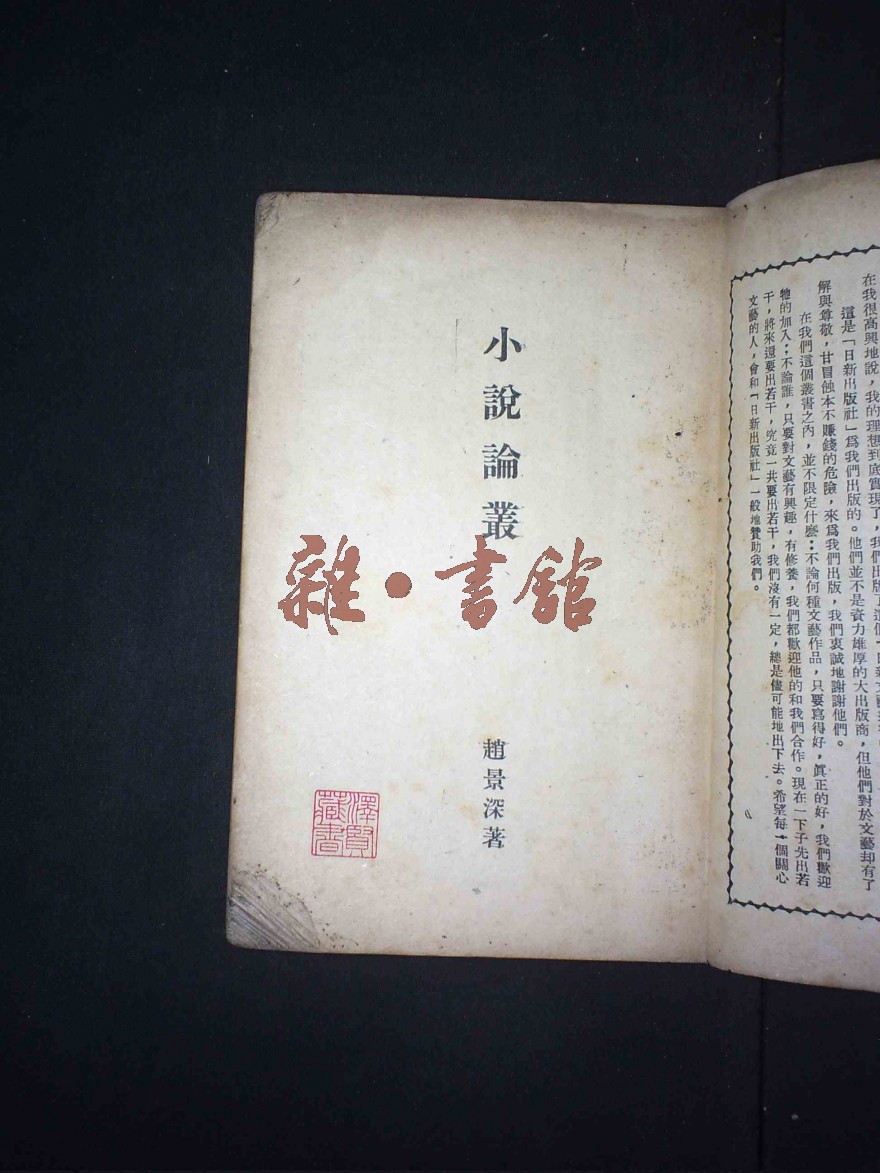 在我很高興地說，我的理想到底實現了，我們出版了這個「日新文藝
這是「日新出版社」為我們出版的。他們並不是資力雄厚的大出版商，但他們對於文藝却有了
解與尊敬，甘冒蝕本不賺錢的危險，來為我們出版，我們衷誠地謝謝他們。
在我們這個叢書之內，並不限定什麼：不論何種文藝作品，只要寫得好，眞正的好，我們歡迎
牠的加入；不論誰，只要對文藝有興趣，有修養，我們都歡迎他的和我們合作。現在一下子先出若
干，將來還要出若干，究竟一共要出若干，我們沒有一定，總是儘可能地出下去。希望每一個關心
文藝的人，會和「日新出版社」一般地贊助我們。
小說論叢
趙景深著
澤賢
藏書
雜·書館